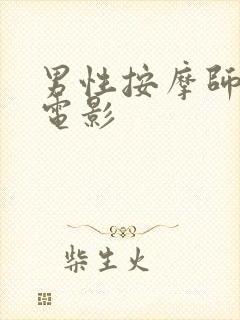 男性按摩師
電影
柴生火